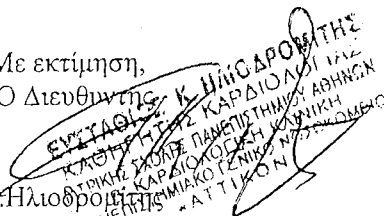 Με εκτίμηση,
Ο Διευθυντής
ΕΥΣΤΑΘΙΟΣ Κ. ΗΛΙΟΔΡΟΜΙΤΗΣ
ΚΑΘΗΓΗΤΗΣ ΚΑΡΔΙΟΛΟΓΙΑΣ
ΙΑΤΡΙΚΗΣ ΣΧΟΛΗΣ ΠΑΝΕΠΙΣΤΗΜΙΟΥ ΑΘΗΝΩΝ
ΚΑΡΔΙΟΛΟΓΙΚΗ ΚΛΙΝΙΚΗ
ΠΑΝΕΠΙΣΤΗΜΙΑΚΟ ΓΕΝΙΚΟ ΝΟΣΟΚΟΜΕΙΟ
"ΑΤΤΙΚΟΝ"
Ηλιοδρομίτης